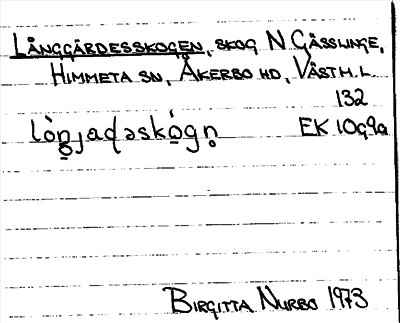 LÅNGGÄRDESSKOGEN, SKOG N GÄSSLINGE,
HIMMETA SN, ÅKERBO HD, VÄSTM. L.
132
EK 10g9a
BIRGITTA NURBO 1973